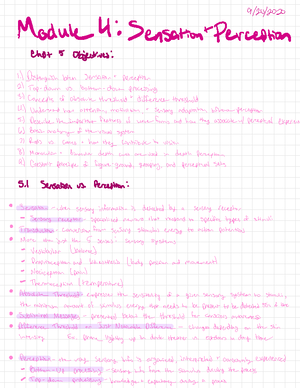 9/24/2020
Module 4: Sensation + Perception
Chpt 5 Objectives:
1) Distinguish btwn Sensation + Perception
2) Top-down vs bottom-down processing
3) Concepts of absolute threshold + difference threshold
4) Understand how attention, motivation, + Sensory adaptation influence perception
5) Describe the important features of wave forms and how they associate w/ perceptual experience
6) Basic anatomy of the visual system
7) Rods vs cones + how they contribute to vision
8) Monocular + binocular cues are used in depth perception
9) Discuss principles of figure-ground, grouping, and perceptual sets
5.1 Sensation vs Perception:
Sensation - when sensory information is detected by a sensory receptor
- Sensory receptor: specialized neurons that respond to specific types of stimuli
Transduction - conversion from sensory stimulus energy to action potential
More than just the 5 senses: sensory systems
- Vestibular (balance)
- Proprioception and kinesthesia (body position and movement)
- Nociception (pain)
- Thermoception (temperatures)
Absolute Threshold - expresses the sensitivity of a given sensory system to stimuli,
the minimum amount of stimulus energy that needs to be present to be detected 50% of time
Subliminal Messages - presented below the threshold for conscious awareness
Difference Threshold - Just Noticeable Difference - changes depending on the stim
intensity Ex. phone lighting up in dark theater vs
Perception - the way sensory info is organized, interpreted + consciously experienced
- Bottom-Up processing - sensory info from the stimulus driving the process
- Top-down processing - knowledge + expectancy driving the process